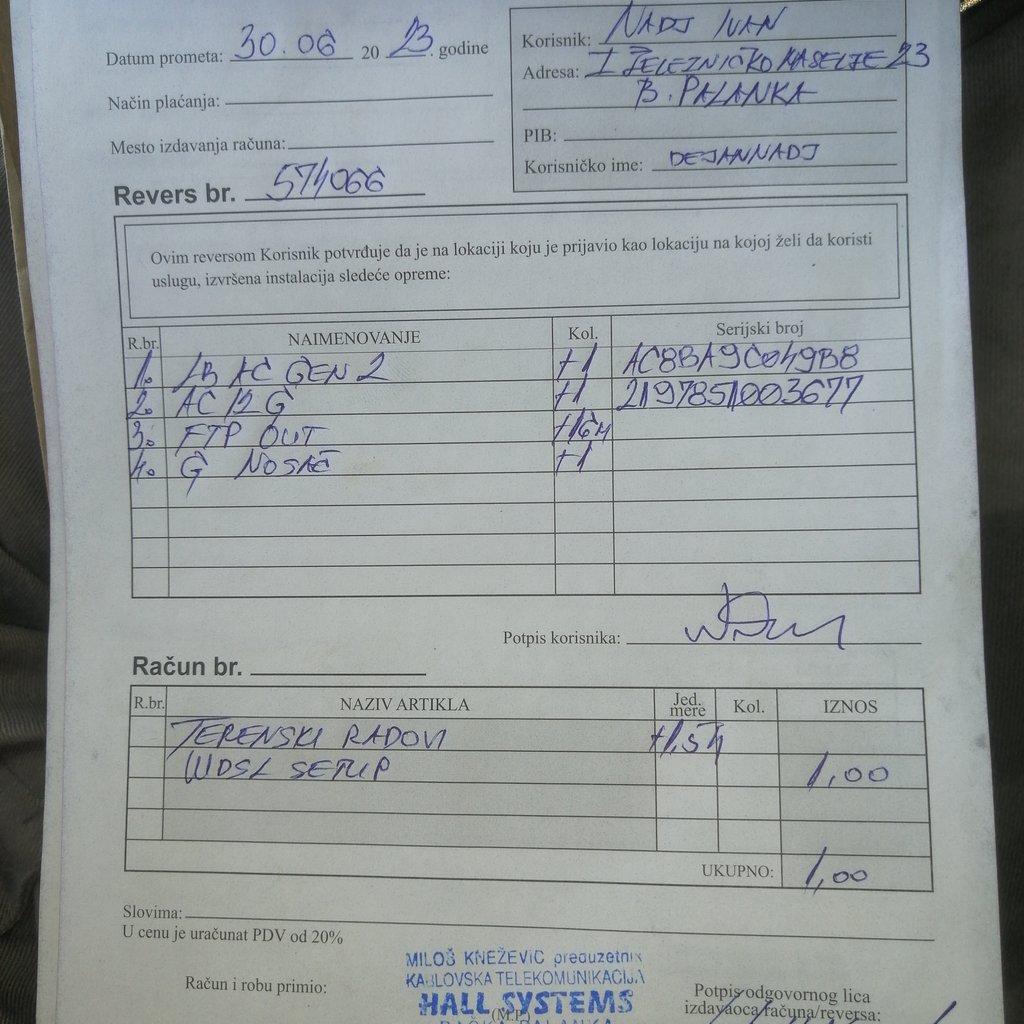 Datum prometa: 30.06 2023. godine
Način plaćanja:
Mesto izdavanja računa:
Revers br. 574066
Korisnik: NADJ IVAN
Adresa: I ŽELEZNIČKO NASELJE 23
B. PALANKA
PIB:
Korisničko ime: DEJANNADJ
Ovim reversom Korisnik potvrđuje da je na lokaciji koju je prijavio kao lokaciju na kojoj želi da koristi
uslugu, izvršena instalacija sledeće opreme:
R.br. NAIMENOVANJE Kol. Serijski broj
1. LB AC GEN 2 +1 AC8BA9C049B8
2. AC 12 G +1 2197851003677
3. FTP OUT +16M
4. G NOSAČ +1
Potpis korisnika:
Račun br.
R.br. NAZIV ARTIKLA Jed. mere Kol. IZNOS
TERENSKI RADOVI +1,5h
WDSL SETUP 1,00
UKUPNO: 1,00
Slovima:
U cenu je uračunat PDV od 20%
Račun i robu primio:
MILOŠ KNEŽEVIĆ preduzetnik
KABLOVSKA TELEKOMUNIKACIJA
HALL SYSTEMS
(M.P.)
BAČKA PALANKA
Potpis odgovornog lica
izdavaoca računa/reversa: